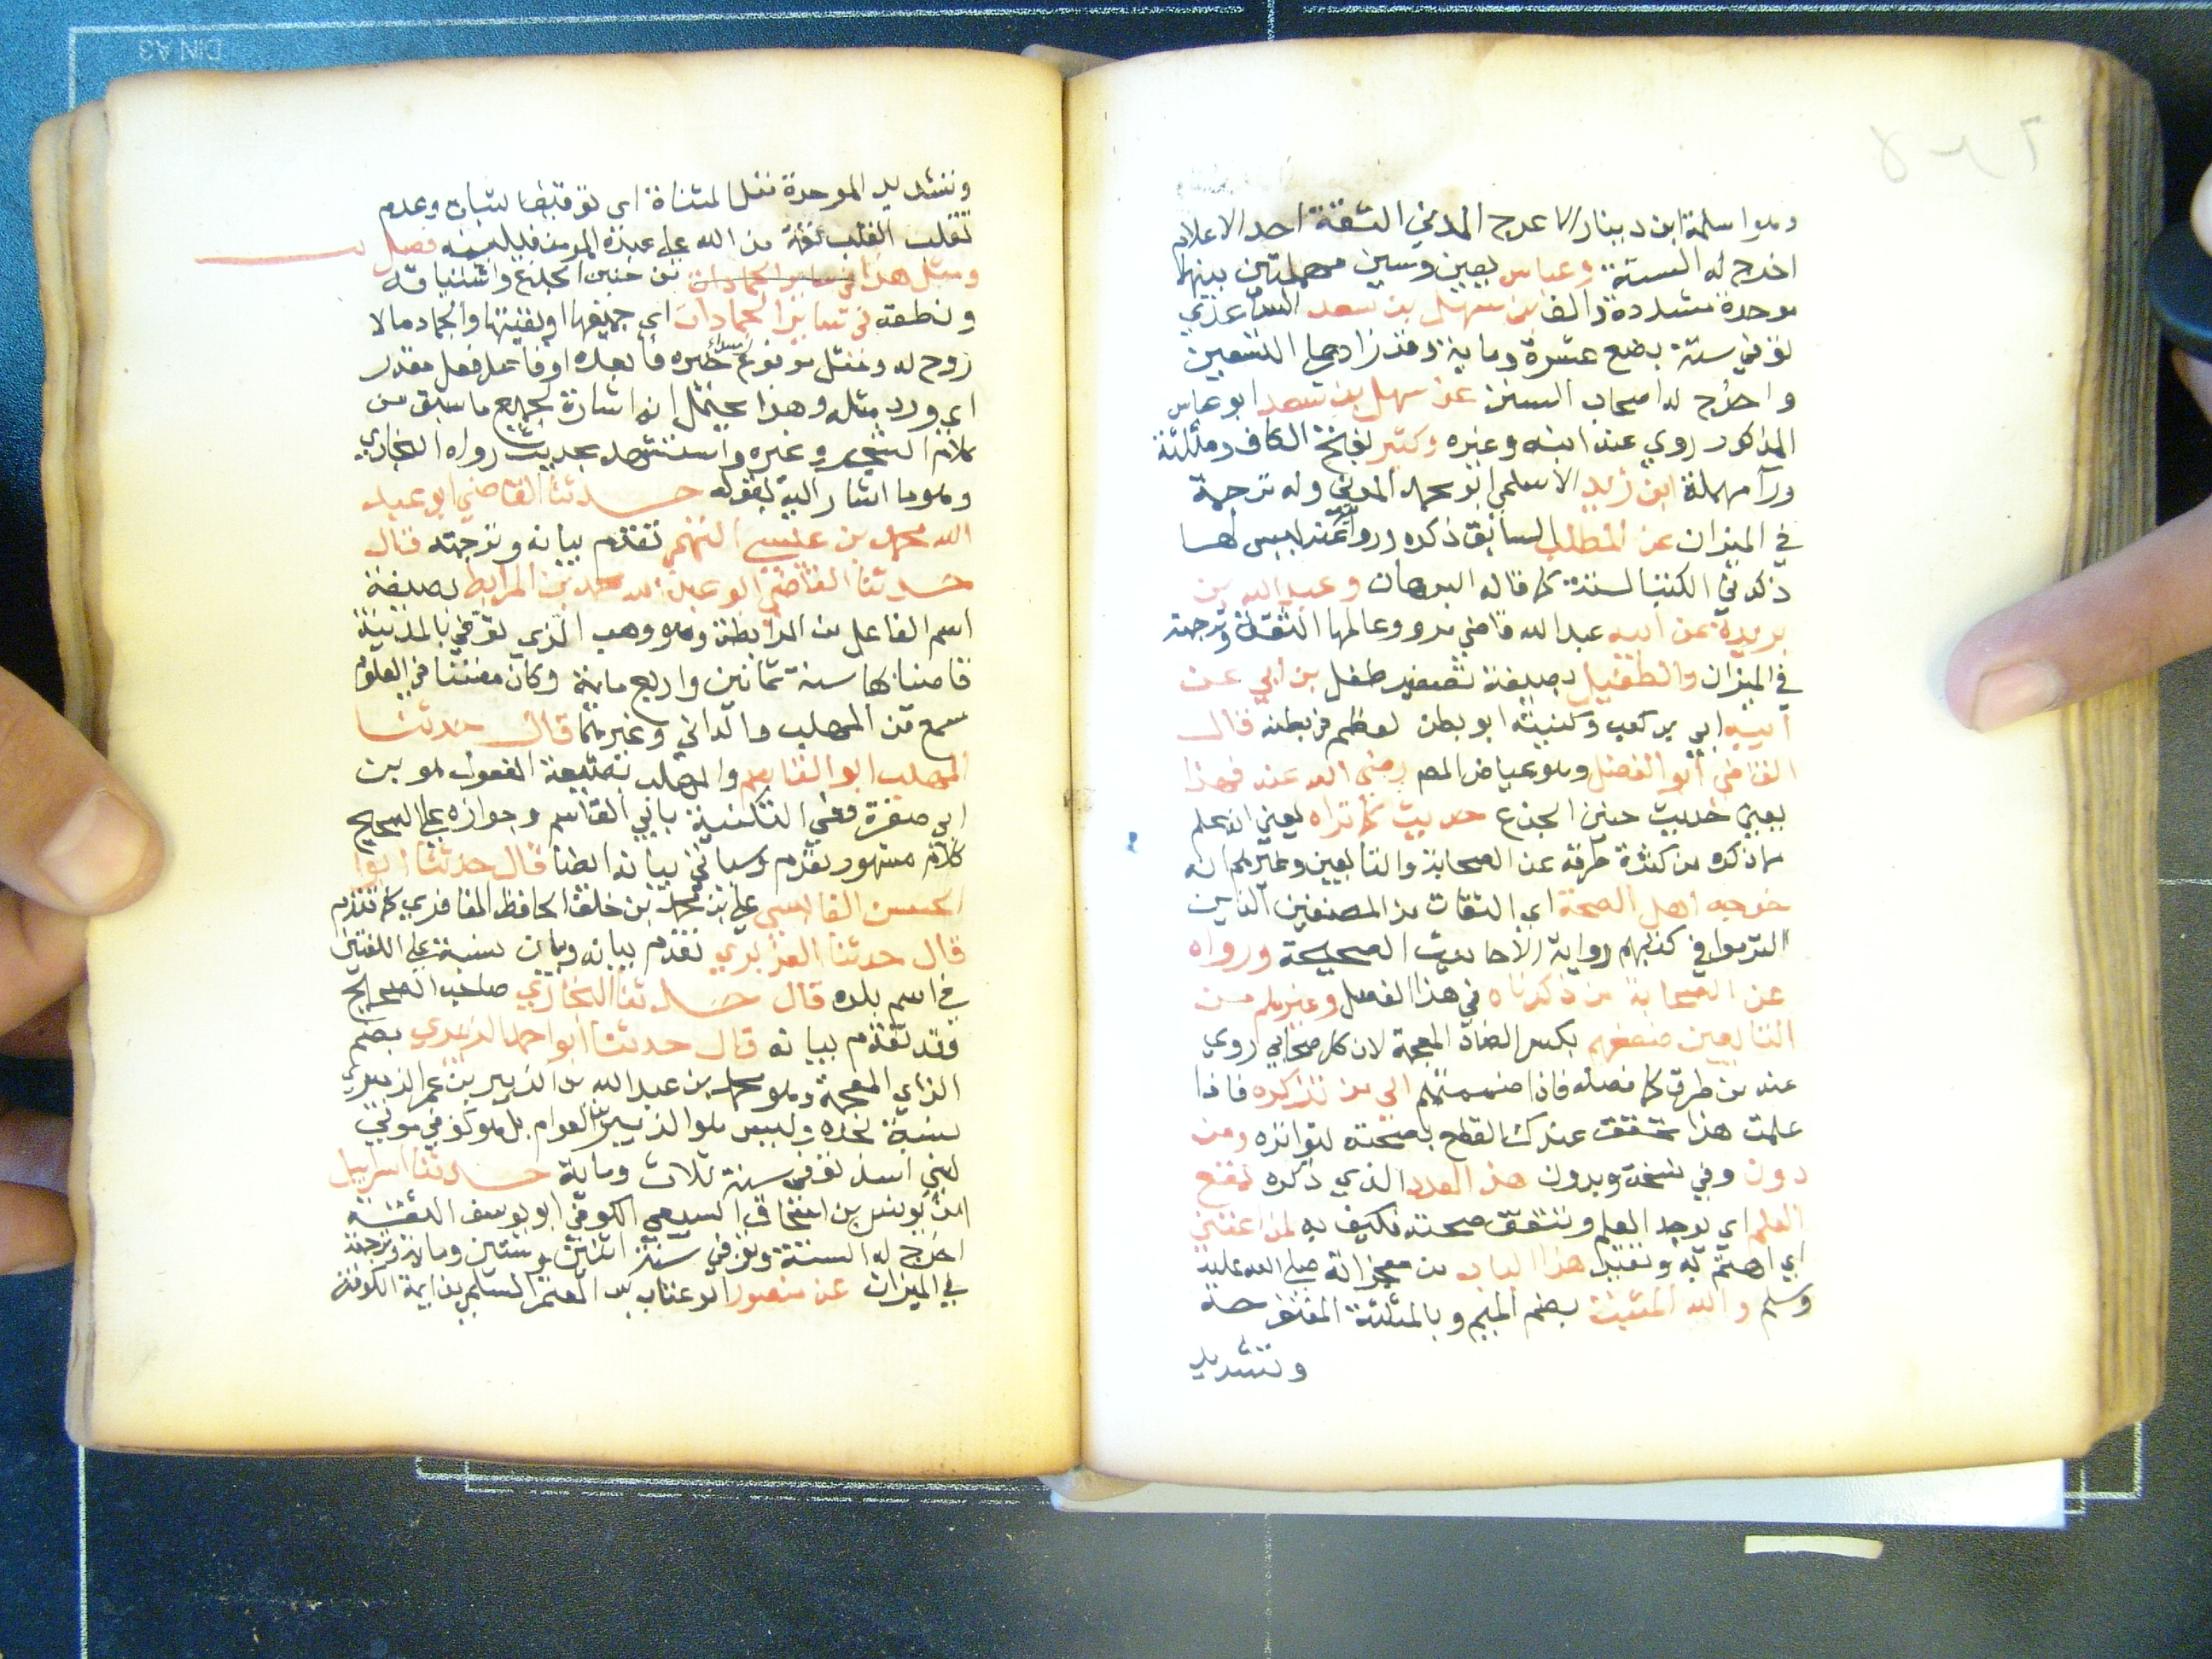 وهو سلمة ابن دينار الاعرج المدني الثقة احد الاعلام
اخرج له الستة وعباس بعين وسين مهملتين بينهما
موحدة مشددة والف بن سهل بن سعد الساعدي
توفي سنة بضع عشرة وماية وقد زاد على التسعين
واخرج له اصحاب السنن عن سهل بن سعد ابو عباس
المذكور روي عنه ابنه وغيره وكثير بفتح الكاف ومثلثة
ورآ مهملة ابن زيد الاسلمي ابو محمد المدني وله ترجمة
في الميزان عن المطلب السابق ذكره وروايته عنه ليس لها
ذكر في الكتب الستة كما قاله البرهان وعبد الله بن
بريدة عن ابيه عبد الله قاضي مرو وعالمها الثقة وترجمته
في الميزان والطفيل بصيغة تصغير طفل بن ابي عن
ابيه ابي بن كعب وكنيته ابو بطن لعظم بطنه قال
القاضي ابو الفضل وهو عياض المص رضي الله عنه فهذا
يعني حديث حنين الجذع حديث كما تراه يعني انه علم
مما ذكره من كثرة طرقه عن الصحابة والتابعين وغيرهم انه
خرجه اهل الصحة اي الثقات من المصنفين الذين
التزموا في كتبهم رواية الاحاديث الصحيحة ورواه
عن الصحابة من ذكرناه في هذا الفصل وغيرهم من
التابعين ضعفهم بكسر الضاد المعجمة لان كل صحابي روي
عنه من طرق كما فصله فاذا ضممتهم الي من لم نذكره فاذا
علمت هذا تحقق عندك القطع بصحته لتواتره ومن
دون وفي نسخة وبدون هذا العدد الذي ذكره يقع
العلم اي يوجد العلم وتتحقق صحته فكيف به لمن اعتني
اي اهتم به وتقيد هذا الباب من معجزاته صلى الله عليه
وسلم والله المثبت بضم الميم وبالمثلثة المفتوحة
وتشديد
وتشديد الموحدة قبل المثناة اي توقيف لثبات وعدم
تقلب القلب ثقة من الله على عبده المومن فصل
ومثل هذا في ساير الجمادات من حنين الجذع واشتياقه
ونطقه في ساير الجمادات اي جميعها او بقيتها والجماد ما لا
روح له ومثل مرفوع مبتدأ خبره ما بعده او فاعل فعل مقدر
اي ورد مثله وهذا يحتمل انه اشارة لجميع ما سبق من
كلام الشجر وغيره واستشهد بحديث رواه البخاري
وهو ما اشار اليه بقوله حدثنا القاضي ابو عبد
الله محمد بن عيسي التميمي تقدم بيانه وترجمته قال
حدثنا القاضي ابو عبد الله محمد بن المرابط بصيغة
اسم الفاعل من المرابطة وهو وهب الذي توفي بالمدينة
قاضيا بها سنة ثمانين واربع ماية وكان مفتيا في العلوم
سمع من المهلب والداني وغيرهما قال حدثنا
المهلب ابو القاسم والمهلب بصيغة المفعول هو بن
ابي صفرة وفي التكنية بابي القاسم وجوازه على الصحيح
كلام مشهور تقدم وسياتي بيانه ايضا قال حدثنا ابو
الحسن القابسي علي بن محمد بن خلف الحافظ المغافري كما تقدم
قال حدثنا الفربري تقدم بيانه وبيان نسبته على اللغتين
في اسم بلده قال حدثنا البخاري صاحب الصحيح
وقد تقدم بيانه قال حدثنا ابو احمد الزبيري بضم
الزاي المعجمة وهو محمد بن عبد الله بن الزبير بن عمر الزبيري
نسبة لجده وليس هو الزبير بن العوام بل هو كوفي مولي
لبني اسد توفي سنة ثلاث وماية حدثنا اسرايل
ابن يونس بن اسحاق السبيعي الكوفي ابو يوسف الثقة
اخرج له الستة وتوفي سنة اثنين وستين وماية وترجمته
في الميزان عن منصور ابو عتاب بن المعتمر السلمي من ايمة الكوفة